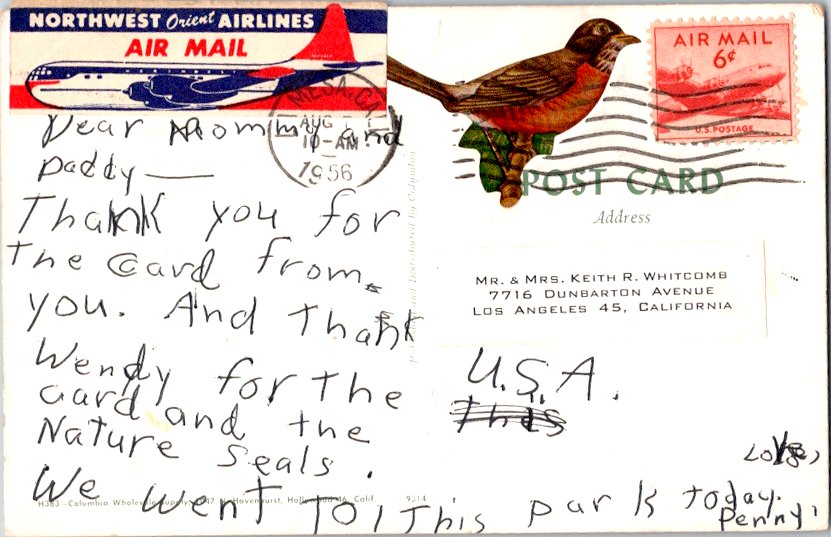 NORTHWEST Orient AIRLINES
AIR MAIL
AIR MAIL
6¢
U.S. POSTAGE
MESA
AUG
10-AM
1956
POST CARD
Address
Dear Mommy and
Daddy —
Thank you for
the card from
you. And thank
Wendy for the
card and the
Nature Seals.
We went To this park today.
MR. & MRS. KEITH R. WHITCOMB
7716 DUNBARTON AVENUE
LOS ANGELES 45, CALIFORNIA
U.S.A.
Love,
Penny
H383-Columbia Wholesale Supply, Hollywood 46, Calif.
9314
Distributed by Columbia